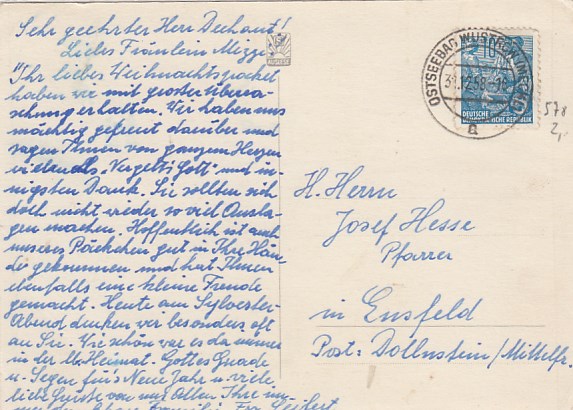 Sehr geehrter Herr Dechant!
Liebes Fräulein Mizzi
Ihr liebes Weihnachtspacket
haben wir mit grosser Überra-
schung erhalten. Wir haben uns
mächtig gefreut darüber und
sagen Ihnen von ganzem Herzen
vielmals „Vergelts Gott" und in-
nigsten Dank. Sie sollten sich
doch nicht wieder so viel Ausla-
gen machen. Hoffentlich ist auch
unseres Päckchen gut in Ihre Hän-
de gekommen und hat Ihnen
ebenfalls eine kleine Freude
gemacht. Heute am Sylvester-
Abend denken wir besonders oft
an Sie. Wie schön war es da immer
in der lb. Heimat. Gottes Gnade
u. Segen für's Neue Jahr u. viele
liebe Grüsse von uns Allen Ihre im-
Familie Frz. Seifert
OSTSEEBAD WUSTROW
31.12.58
a
10
DEUTSCHE
DEMOKRATISCHE REPUBLIK
578
2,-
H. Herrn
Josef Hesse
Pfarrer
in Ensfeld
Post: Dollnstein/Mittelfr.